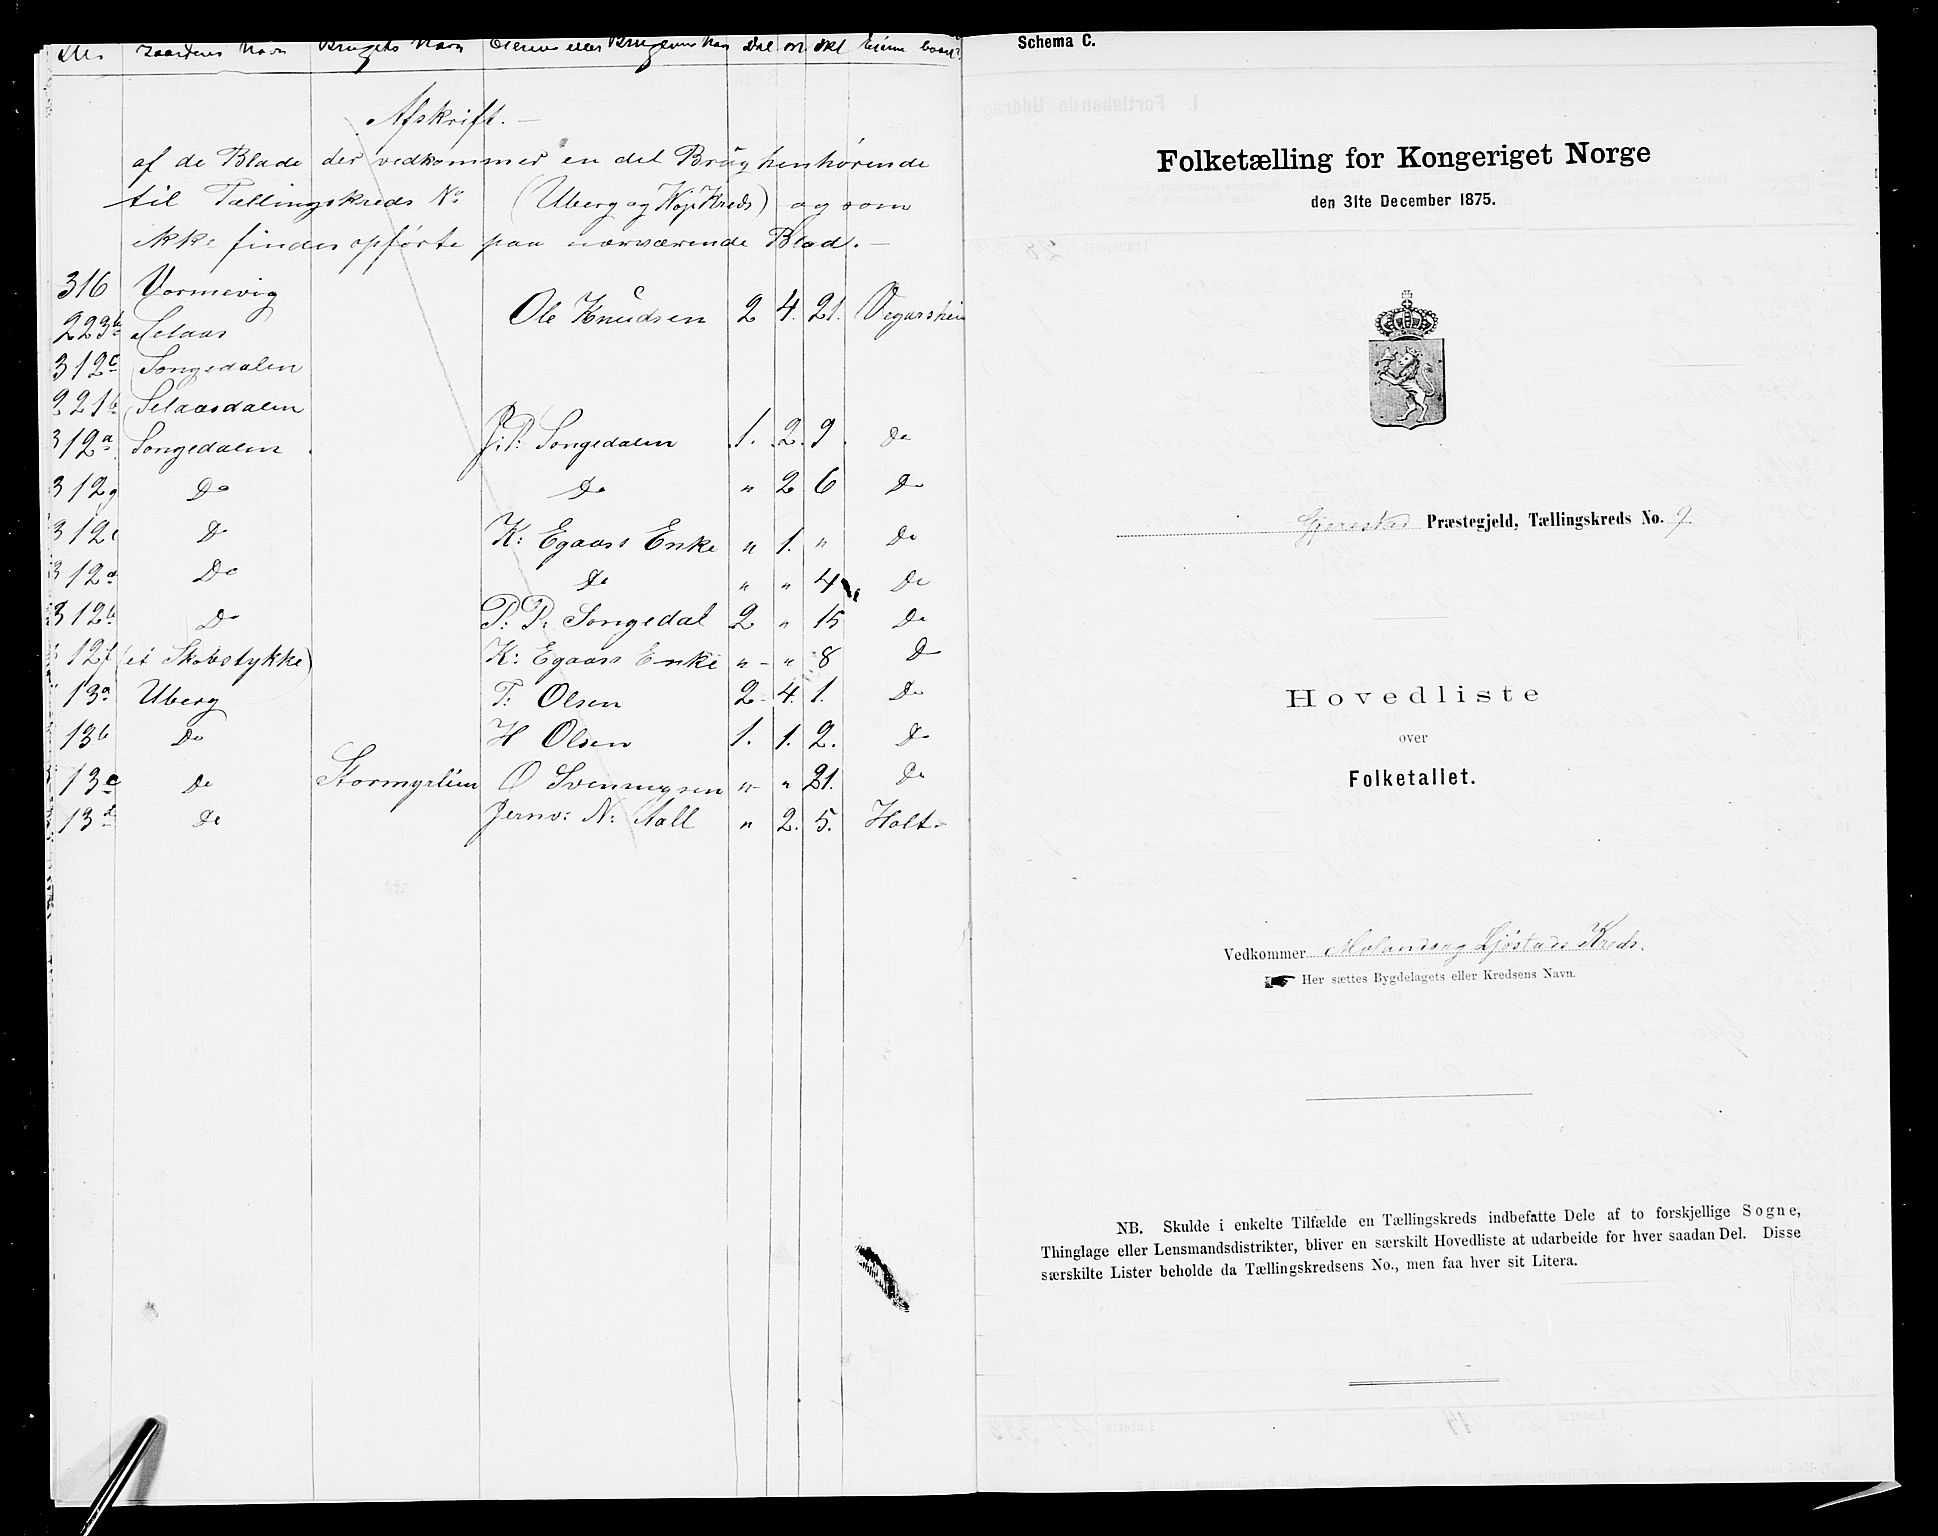 No. Gaardens Navn Brugets Navn Eierens eller Brugerens Navn Dal ort skl Eieren boer?
Afskrift. —
af de Blade der vedkommer en del Brug henhørende
til Tællingskreds No (Uberg og Kop Kreds) og som
ikke findes opførte paa nærværende Blad. —
316 Vormevig
Ole Knudsen 2 4. 21. Vegarshei
223b Selaas
312c Songedalen
221b Selaasdalen
312a Songedalen J. P: Songedalen 1. 2. 9. Do
312g Do Do " 2 6 Do
312e Do K: Egaass Enke " 1. " Do
312d Do Do " " 4 Do
312b Do P. P. Songedal 2 " 15 Do
12f (et Skovstykke) K: Egaass Enke " - " 8 Do
13a Uberg T: Olsen 2 - 4. 1. Do
13b Do H Olsen 1. 1. 2. Do
13c Do Stormyrlien O Svenungsen " - " 21. Do
13d Do Jernv: N: Aall " 2. 5. Holt -
Schema C.
Folketælling for Kongeriget Norge
den 31te December 1875.
Gjerestad Præstegjeld, Tællingskreds No. 9.
Hovedliste
over
Folketallet.
Vedkommer Molands og Ljøstads Kreds.
Her sættes Bygdelagets eller Kredsens Navn.
NB. Skulde i enkelte Tilfælde en Tællingskreds indbefatte Dele af to forskjellige Sogne,
Thinglage eller Lensmandsdistrikter, bliver en særskilt Hovedliste at udarbeide for hver saadan Del. Disse
særskilte Lister beholde da Tællingskredsens No., men faa hver sit Litera.